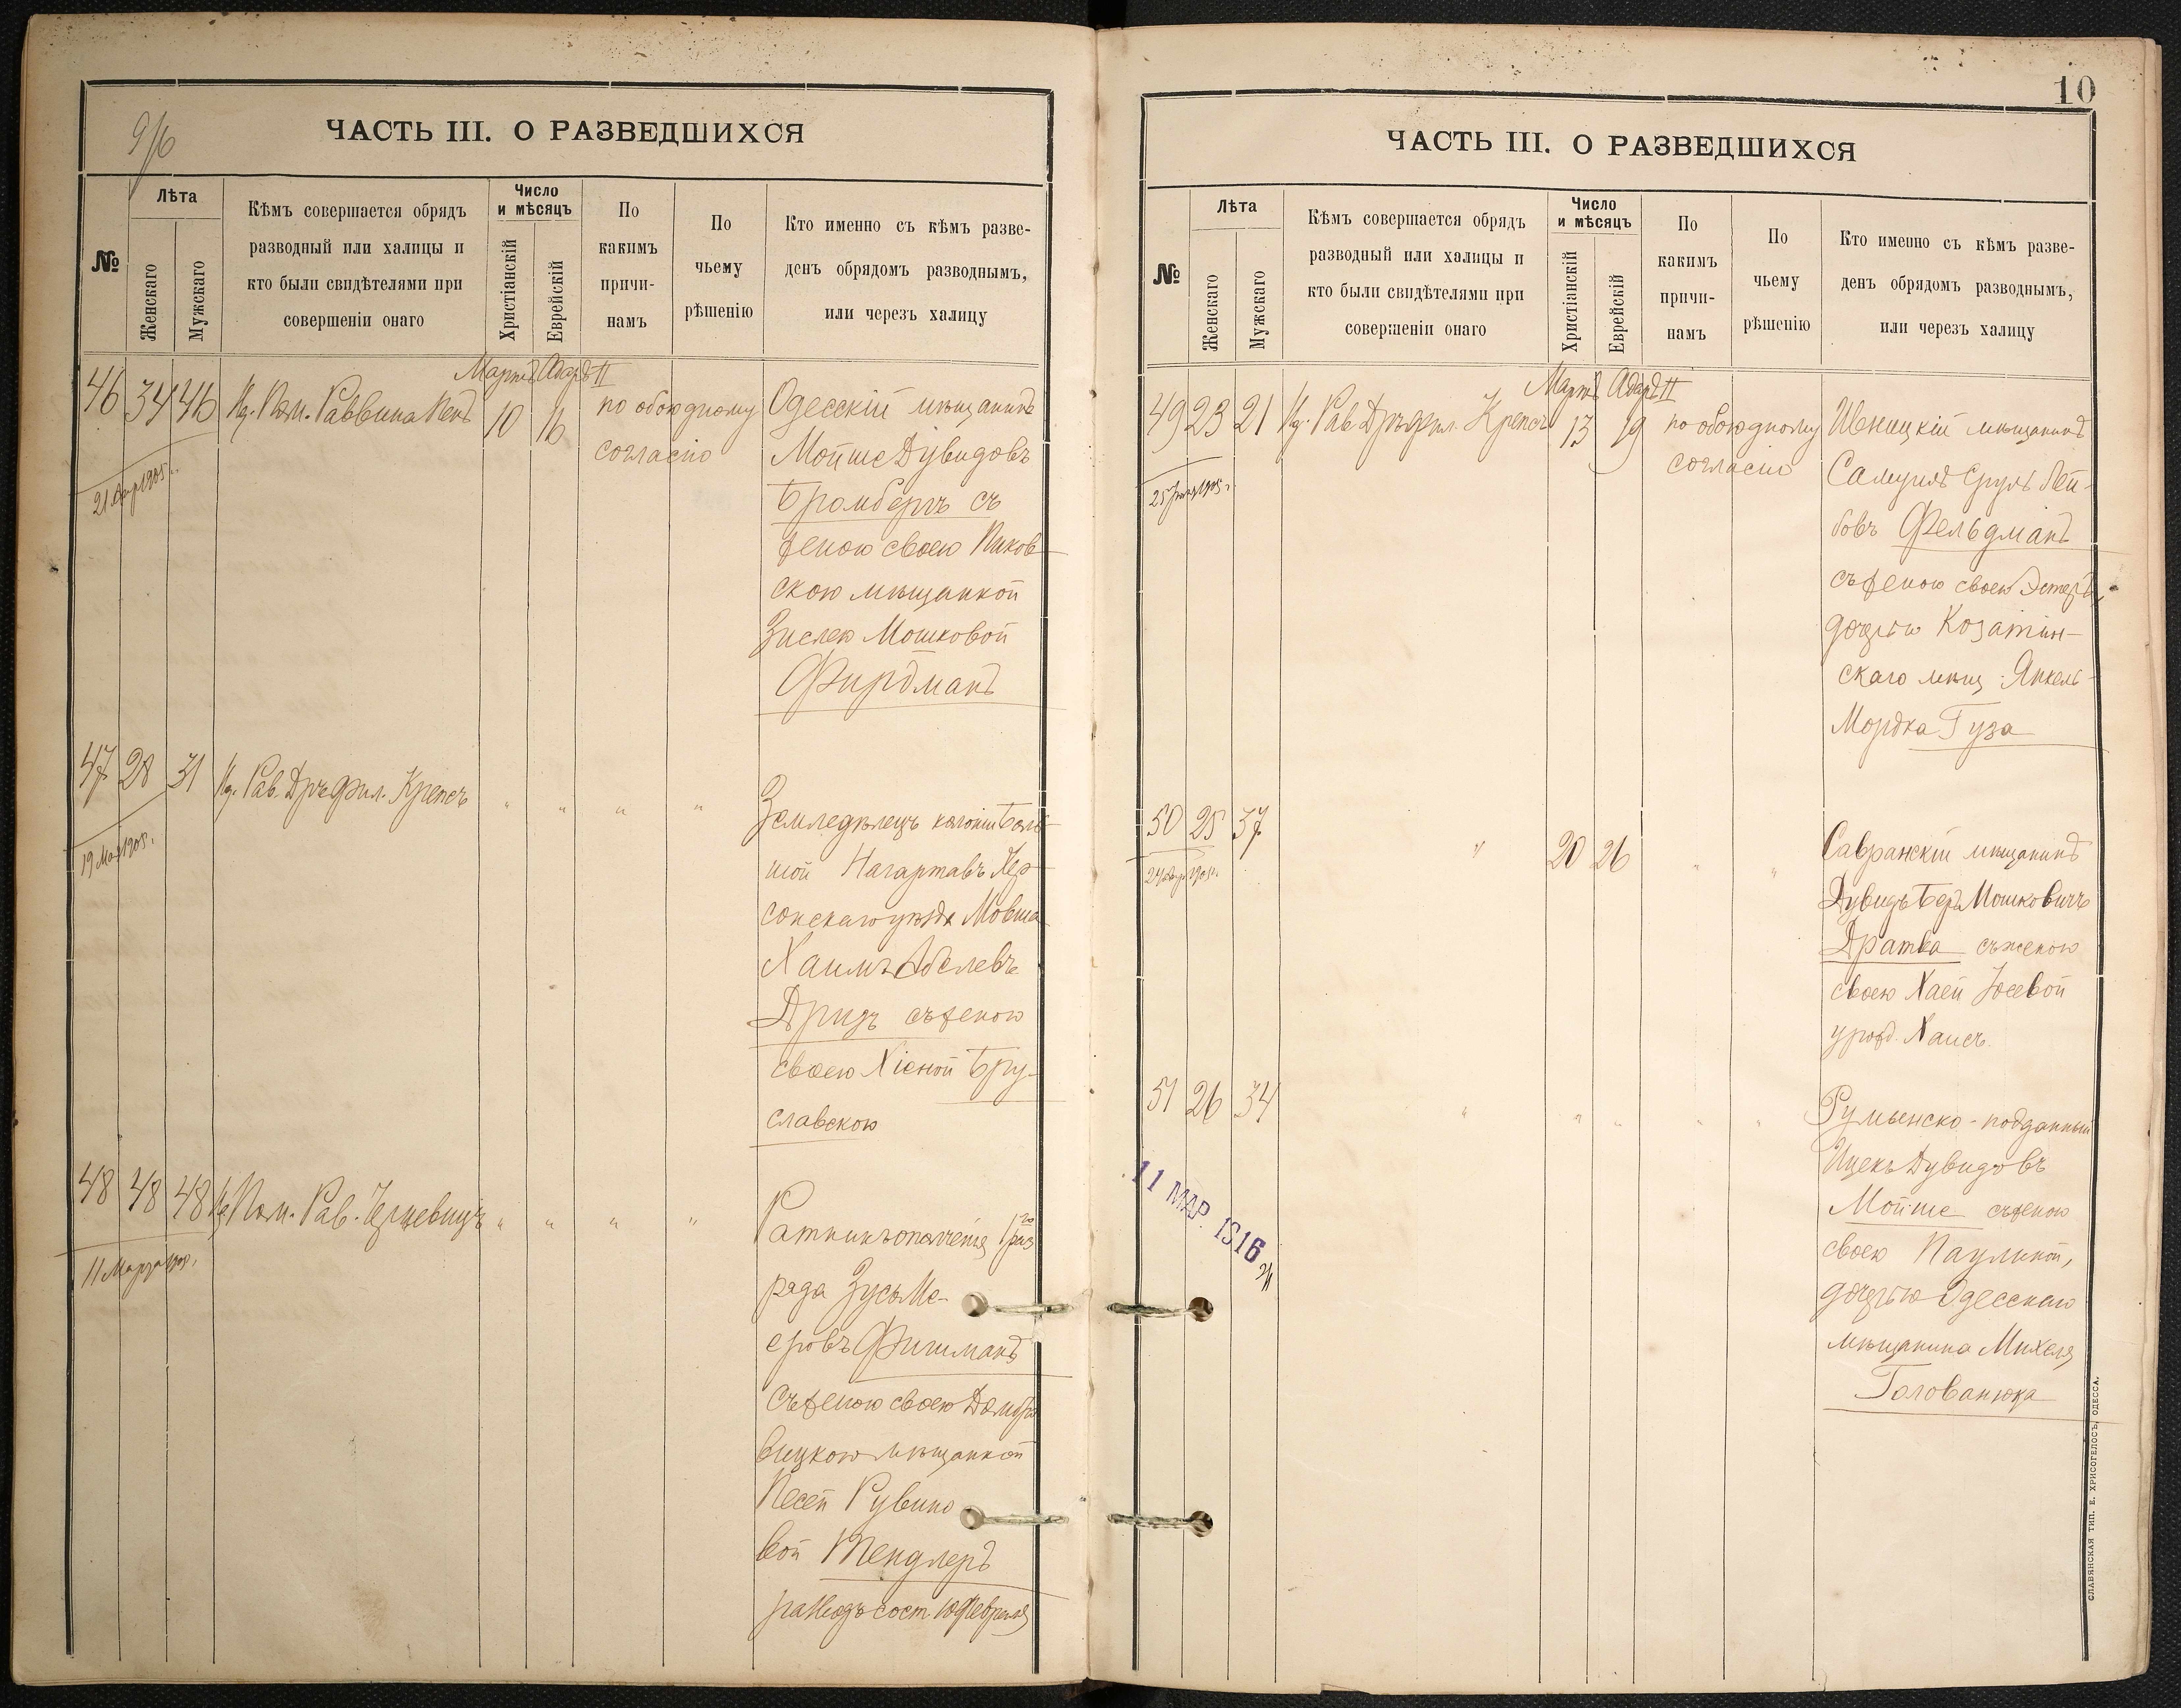 9/6
ЧАСТЬ III. О РАЗВЕДШИХСЯ
№
Лѣта
Женскаго
Мужскаго
Кѣмъ совершается обрядъ
разводный или халицы и
кто были свидѣтелями при
совершеніи онаго
Число
и мѣсяцъ
Христіанскій
Еврейскій
По
какимъ
причи-
намъ
По
чьему
рѣшенію
Кто именно съ кѣмъ разве-
денъ обрядомъ разводнымъ,
или черезъ халицу
Мартъ Адаръ II
46 34 46 Пом. Раввина 10 16 по обоюдному
согласію
Одесскій мѣщанинъ
Мойше Дувидовъ
Бромбергъ съ
женою своею Пиков
скою мѣщанкой
Зислею Мошковой
Фирдманъ
1905
47 28 31 Рав. Дръ Фил. Крепсъ " " " "
Земледѣлецъ колоніи Боль
шой Нагартавъ Хер
сонскаго уѣзда Мовша
Хаимъ Абелевъ
Дризъ съ женою
своею Хіеной Бру-
славскою
19 Мая 1905.
48 48 48 Пом. Рав. " " " "
Ратникъ ополченія 1го раз
ряда Зусь Ме-
еровъ Фишманъ
съ женою своею Домбро
вицкою мѣщанкой
Песей Рувино
вой Тендлеръ
разводъ сост. 10 Февраля
11 Марта
10
ЧАСТЬ III. О РАЗВЕДШИХСЯ
№
Лѣта
Женскаго
Мужскаго
Кѣмъ совершается обрядъ
разводный или халицы и
кто были свидѣтелями при
совершеніи онаго
Число
и мѣсяцъ
Христіанскій
Еврейскій
По
какимъ
причи-
намъ
По
чьему
рѣшенію
Кто именно съ кѣмъ разве-
денъ обрядомъ разводнымъ,
или черезъ халицу
Мартъ Адаръ II
49 23 21 Рав. Дръ Фил. Крепсъ 13 19 по обоюдному
согласію
Ивницкій мѣщанинъ
Самуилъ Сруль Лей-
бовъ Фельдманъ
съ женою своею Эстеръ,
дочерью Козатин-
скаго мѣщ. Янкель-
Мордка Гуза
1905 г.
50 25 37 " 20 26 " "
Савранскій мѣщанинъ
Дувидъ Беръ Мошковичъ
Дратва съ женою
своею Хаей Іосевой
урожд. Хаисъ.
51 26 34 " " " " "
Румынско-подданный
Ицекъ Дувидовъ
Мойше съ женою
своею Паулиной,
дочерью Одесскаго
мѣщанина Михеля
Голованюка
11 МАР. 1916
СЛАВЯНСКАЯ ТИП. Е. ХРИСОГЕЛОСЪ, ОДЕССА.